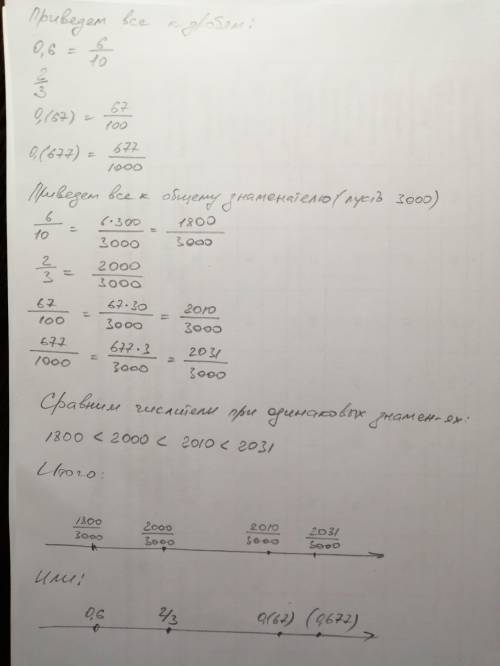 Приведем все к дробям:
0,6 = 6/10
2/3
0,(67) = 67/100
0,(677) = 677/1000
Приведем все к общему знаменателю (пусть 3000)
6/10 = 6·300/3000 = 1800/3000
2/3 = 2000/3000
67/100 = 67·30/3000 = 2010/3000
677/1000 = 677·3/3000 = 2031/3000
Сравним числители при одинаковых знамен-ях:
1800 < 2000 < 2010 < 2031
Итого:
1800/3000 2000/3000 2010/3000 2031/3000
Или:
0,6 2/3 0,(67) (0,677)